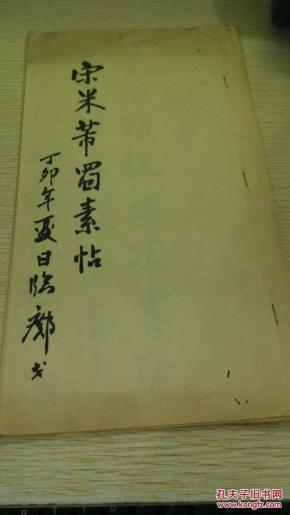 宋米芾蜀素帖
丁卯年夏日临
孔夫子旧书网
www.kongfz.com